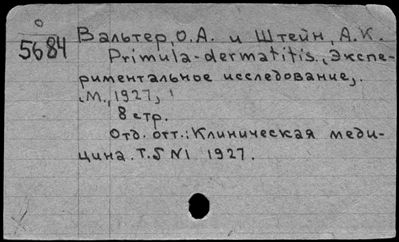 5684
Вальтер, О.А. и Штейн, А.К.
Primula-dermatitis. Экспе-
риментальное исследование,.
М., 1927,
8 стр.
Отд. отт.: Клиническая меди-
цина. Т.5 N1 1927.